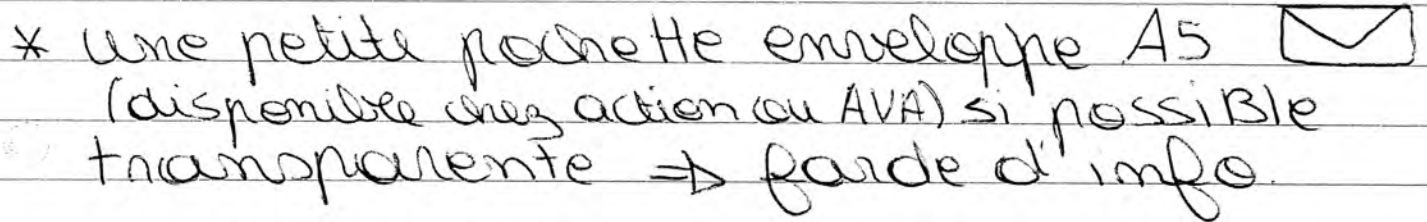 * une petite pochette enveloppe A5
(disponible chez action ou AVA) si possiBle
transparente => farde d'info.